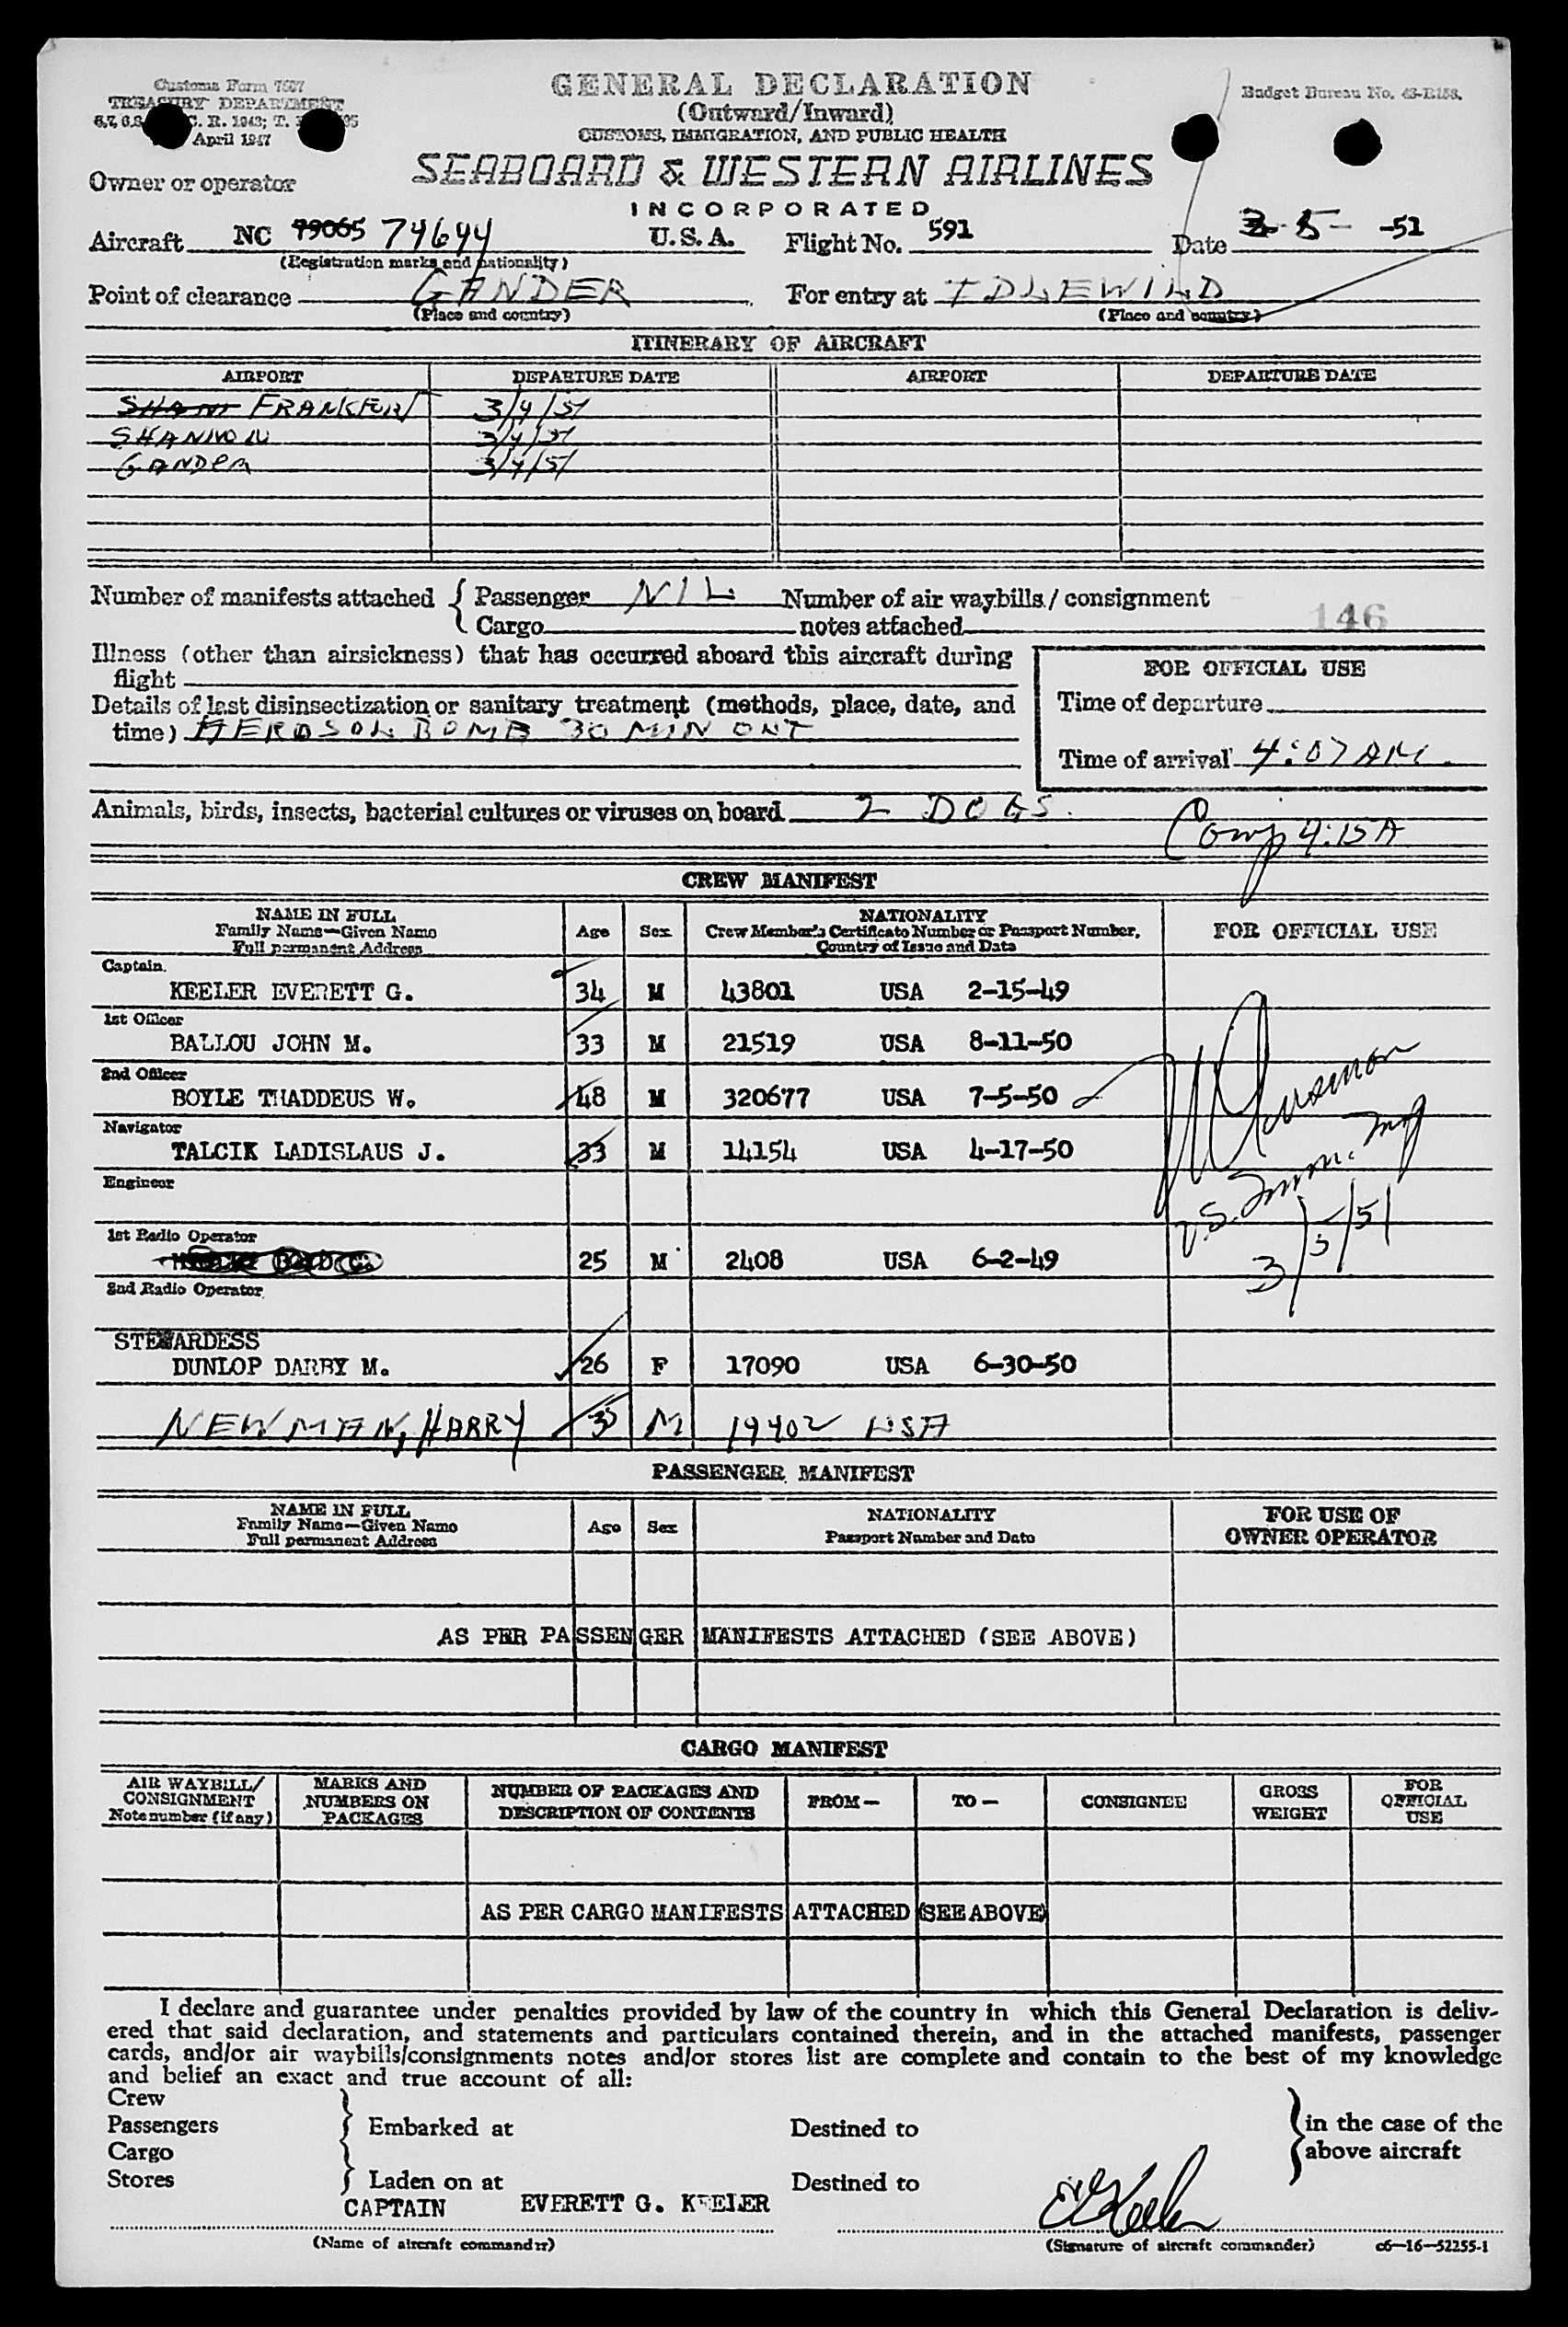 Customs Form 7507
GENERAL DECLARATION
Budget Bureau No.
TREASURY DEPARTMENT
(Outward/Inward)
C. R. 1943; T.
April 1947
CUSTOMS, IMMIGRATION, AND PUBLIC HEALTH
Owner or operator SEABOARD & WESTERN AIRLINES
INCORPORATED
Aircraft NC 79065 74644 U.S.A. Flight No. 591 Date 5 -51
(Registration marks and nationality)
Point of clearance GANDER For entry at IDLEWILD
(Place and country) (Place and country)
ITINERARY OF AIRCRAFT
AIRPORT DEPARTURE DATE AIRPORT DEPARTURE DATE
SHANN FRANKFURT 3/4/51
SHANNON 3/4/51
GANDER 3/4/51
Number of manifests attached { Passenger NIL Number of air waybills / consignment
Cargo notes attached 146
Illness (other than airsickness) that has occurred aboard this aircraft during
flight
Details of last disinsectization or sanitary treatment (methods, place, date, and
time) AEROSOL BOMB 30 MIN OUT
FOR OFFICIAL USE
Time of departure
Time of arrival 4:07 AM
Animals, birds, insects, bacterial cultures or viruses on board 2 DOGS.
Comp 4:15 A
CREW MANIFEST
NAME IN FULL
Family Name—Given Name
Full permanent Address
Age Sex
NATIONALITY
Crew Member's Certificate Number or Passport Number,
Country of Issue and Date
FOR OFFICIAL USE
Captain.
KEELER EVERETT G. 34 M 43801 USA 2-15-49
1st Officer
BALLOU JOHN M. 33 M 21519 USA 8-11-50
2nd Officer
BOYLE THADDEUS W. 48 M 320677 USA 7-5-50
Navigator
TALCIK LADISLAUS J. 33 M 14154 USA 4-17-50
Engineer
U.S. Imm.
3/5/51
1st Radio Operator
25 M 2408 USA 6-2-49
2nd Radio Operator
STEWARDESS
DUNLOP DARBY M. 26 F 17090 USA 6-30-50
NEWMAN, HARRY M 19402 USA
PASSENGER MANIFEST
NAME IN FULL
Family Name—Given Name
Full permanent Address
Age Sex
NATIONALITY
Passport Number and Date
FOR USE OF
OWNER OPERATOR
AS PER PASSENGER MANIFESTS ATTACHED (SEE ABOVE)
CARGO MANIFEST
AIR WAYBILL/
CONSIGNMENT
Note number (if any)
MARKS AND
NUMBERS ON
PACKAGES
NUMBER OF PACKAGES AND
DESCRIPTION OF CONTENTS
FROM—
TO—
CONSIGNEE
GROSS
WEIGHT
FOR
OFFICIAL
USE
AS PER CARGO MANIFESTS ATTACHED (SEE ABOVE)
I declare and guarantee under penalties provided by law of the country in which this General Declaration is deliv-
ered that said declaration, and statements and particulars contained therein, and in the attached manifests, passenger
cards, and/or air waybills/consignments notes and/or stores list are complete and contain to the best of my knowledge
and belief an exact and true account of all:
Crew
Passengers } Embarked at Destined to } in the case of the
Cargo above aircraft
Stores } Laden on at Destined to
CAPTAIN EVERETT G. KEELER EG Keeler
(Name of aircraft commander) (Signature of aircraft commander) c6—16—52255-1